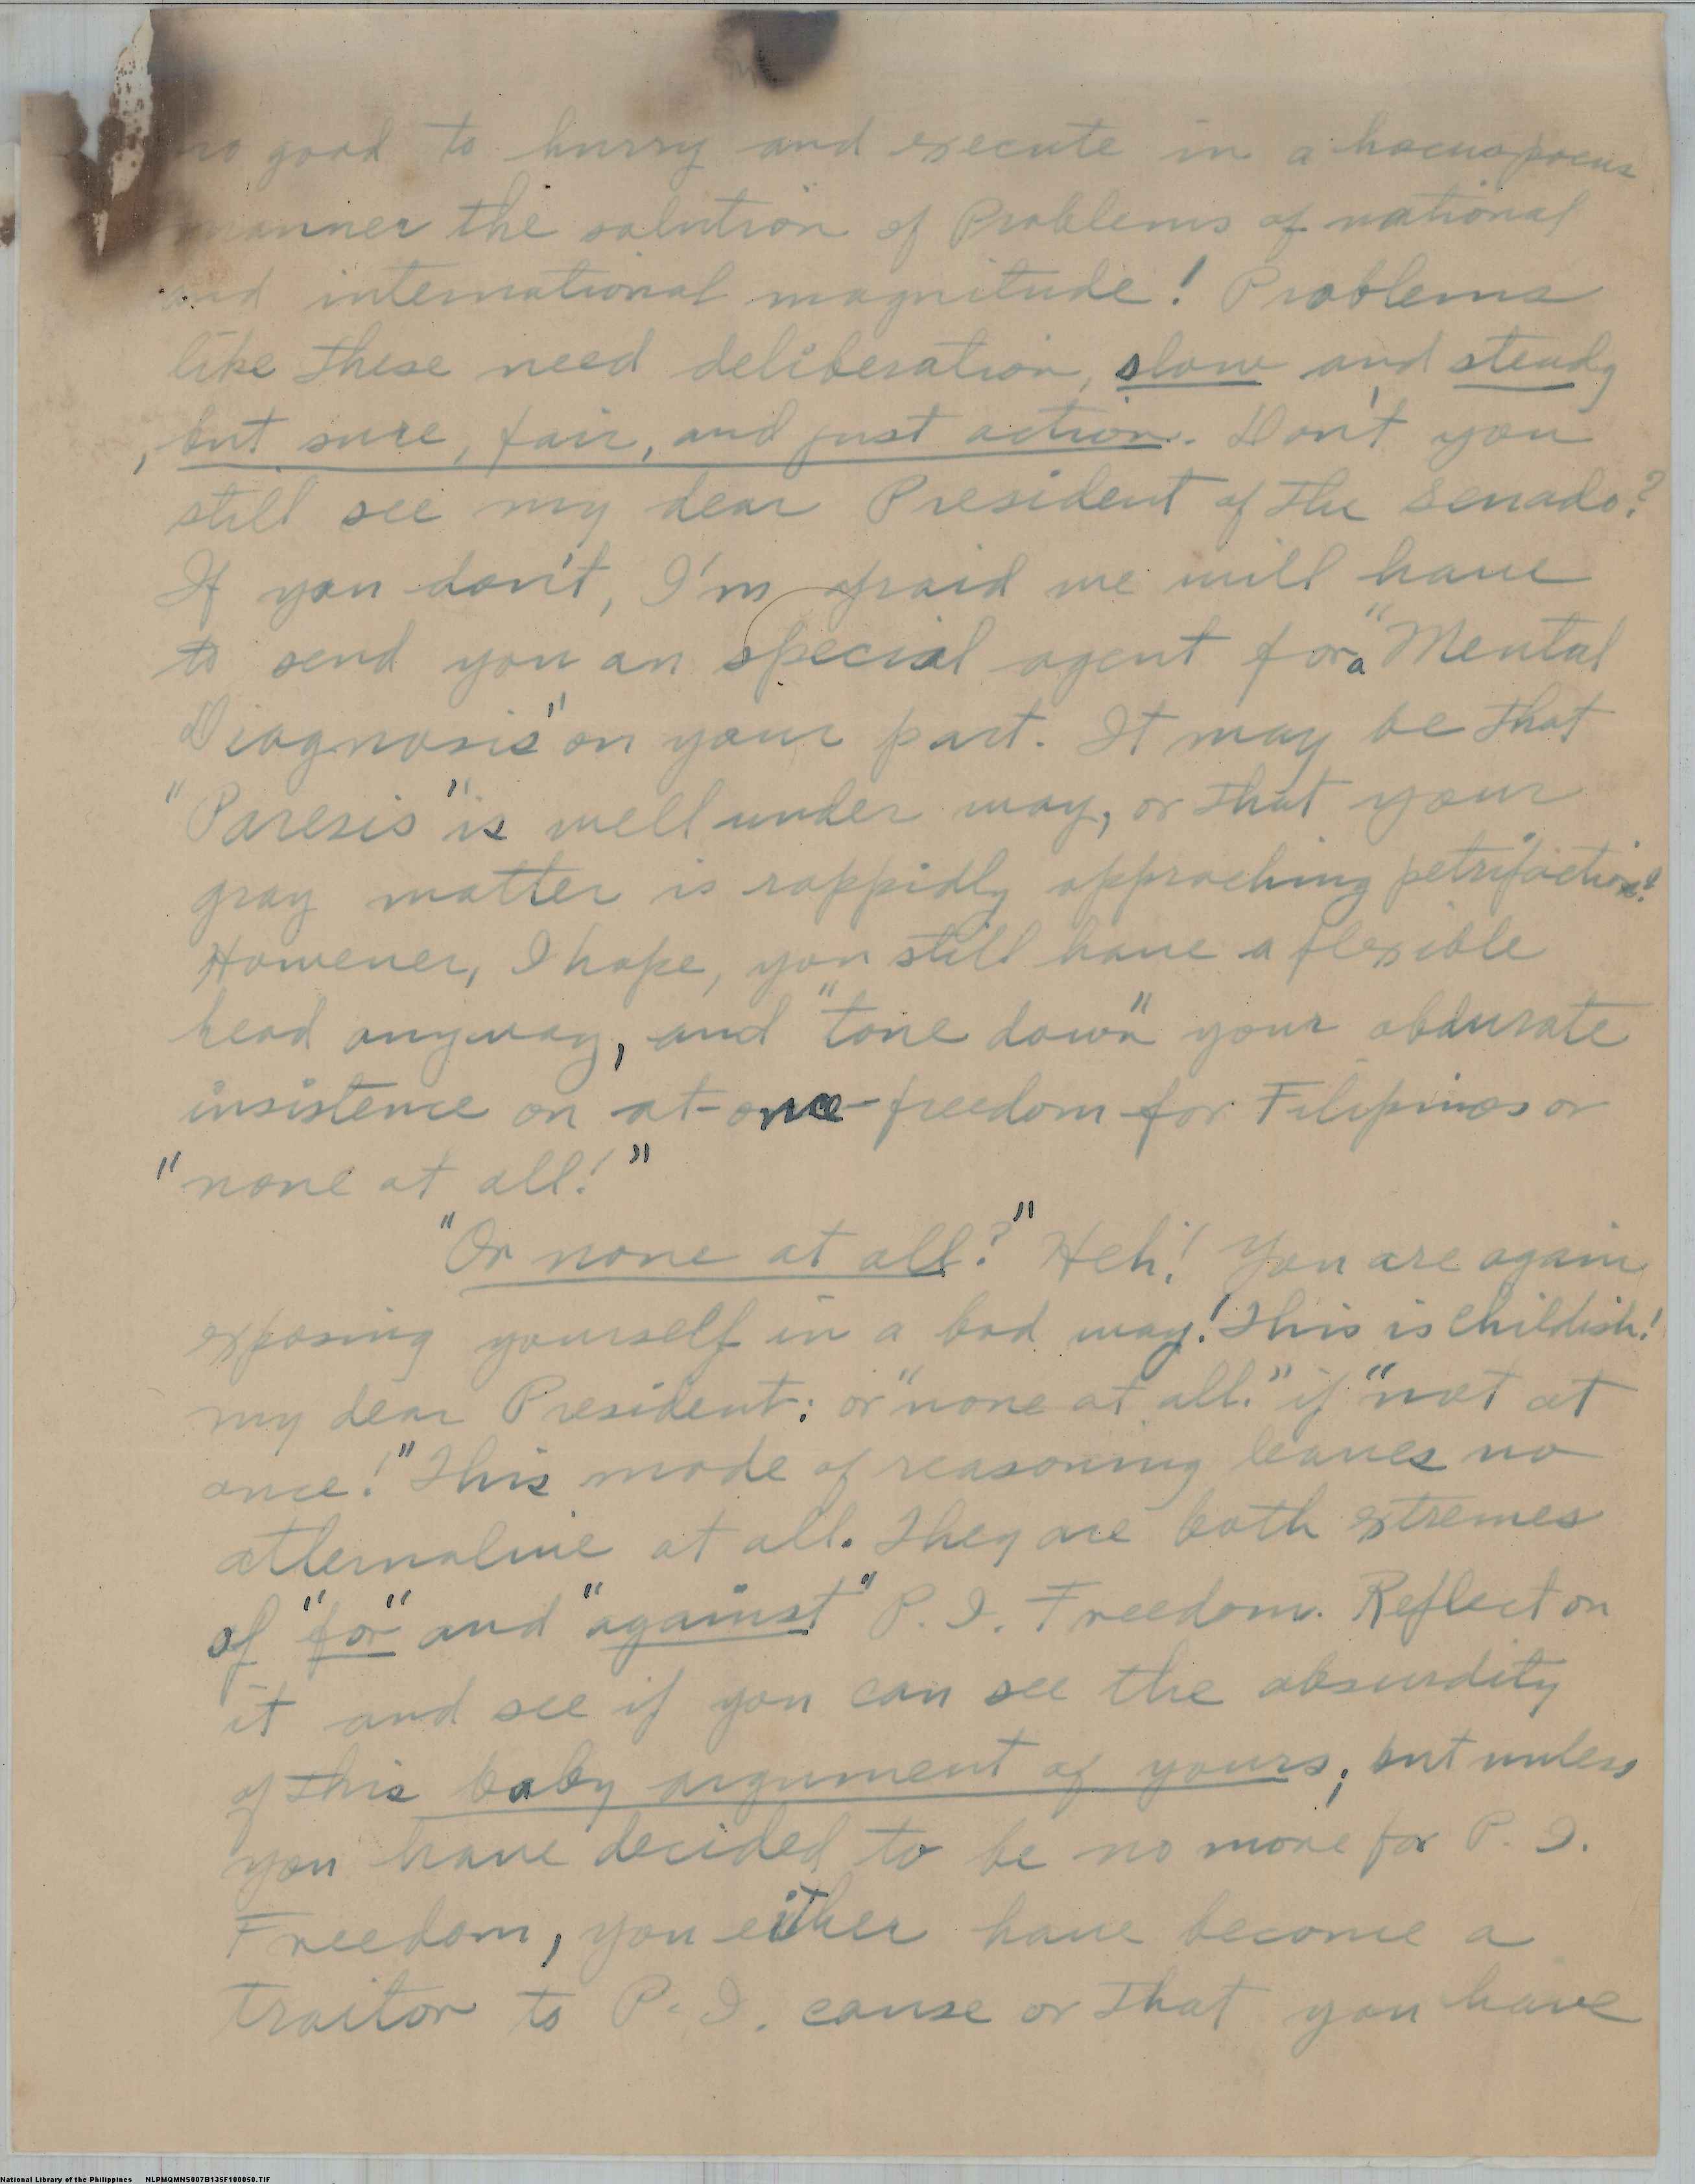 no good to hurry and execute in a hocuspocus
manner the solution of Problems of national
and international magnitude! Problems
like these need deliberation, slow and steady
, but sure, fair, and just action. Don't you
still see my dear President of the Senado?
If you don't, I'm afraid we will have
to send you an special agent for a "Mental
Diagnosis" on your part. It may be that
"Paresis" is well under way, or that your
gray matter is rappidly approching petrifaction!
However, I hope, you still have a flexible
head anyway, and "tone down" your obdurate
insistence on at-once-freedom for Filipinos or
"none at all!"
"Or none at all?" Heh! You are again
exposing yourself in a bad way! This is childish!
my dear President: or "none at all." if "not at
once!" This mode of reasoning leaves no
alternative at all. They are both extremes
of "for" and "against" P. I. Freedom. Reflect on
it and see if you can see the absurdity
of this baby argument of yours; but unless
you have decided to be no more for P. I.
Freedom, you either have become a
traitor to P. I. cause or that you have
National Library of the Philippines NLPMQMNS007B135F100050.TIF